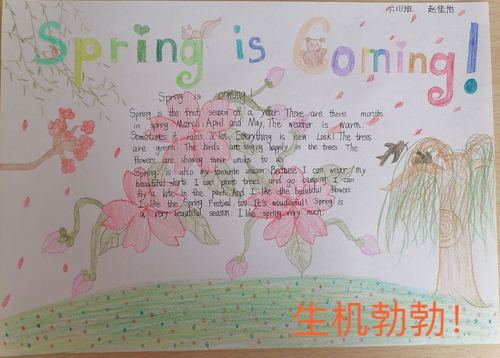 六(1)班
Spring is Coming!
Spring is coming
Spring is the first season of a year. There are there months
in spring March, April and May. The weather is warm.
Sometimes it rains a lot. Everything is new. Look! The trees
are green. The birds are singing happily in the trees. The
flowers are showing their smiles to
Spring is also my favourite season. Because I can wear my
beautiful skirts. I can plant trees and go camping. I can
fly a kite in the park. And I like the beautiful flowers.
I like the Spring Festival, too. It's wonderful! Spring is
a very beautiful season. I like spring very much.
生机勃勃！